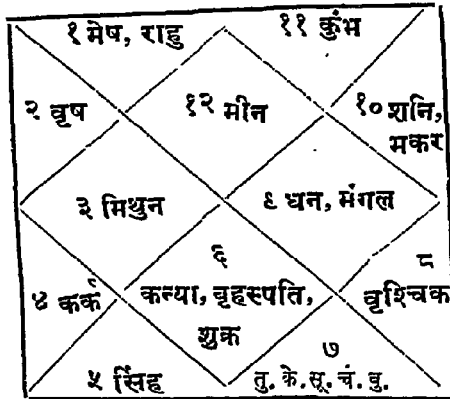 १ मेष, राहु
११ कुंभ
२ वृष
१२ मीन
१० शनि,
मकर
३ मिथुन
६ धन, मंगल
६
४ कर्क
कन्या, वृहस्पति,
शुक्र
८
वृश्चिक
५ सिंह
७
तु. के. सू. चं. वु.